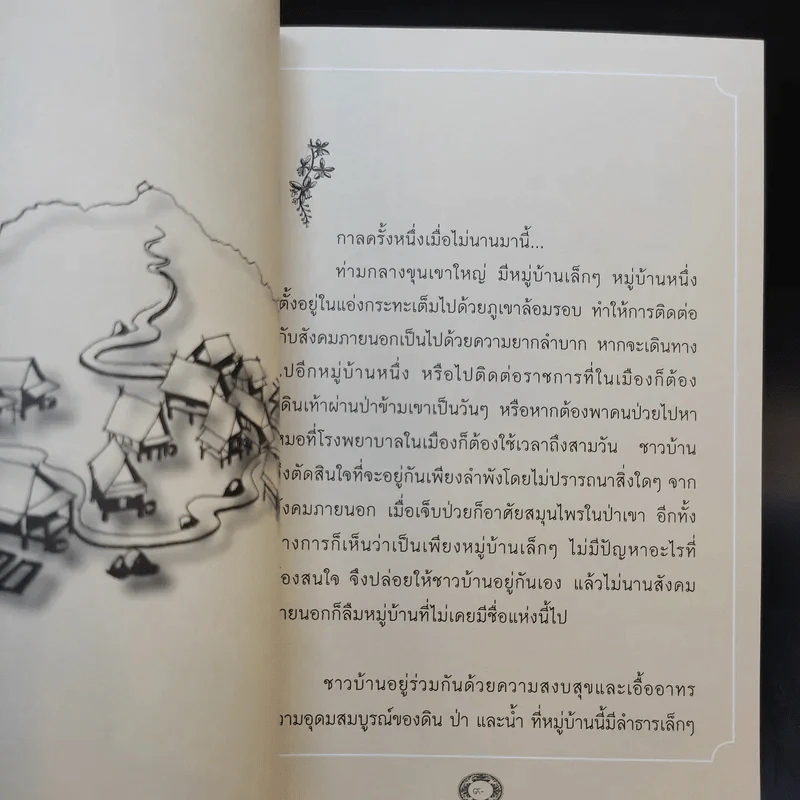 กาลครั้งหนึ่งเมื่อไม่นานมานี้...
ท่ามกลางขุนเขาใหญ่ มีหมู่บ้านเล็กๆ หมู่บ้านหนึ่ง
ตั้งอยู่ในแอ่งกระทะเต็มไปด้วยภูเขาล้อมรอบ ทำให้การติดต่อ
กับสังคมภายนอกเป็นไปด้วยความยากลำบาก หากจะเดินทาง
ปอีกหมู่บ้านหนึ่ง หรือไปติดต่อราชการที่ในเมืองก็ต้อง
ดินเท้าผ่านป่าข้ามเขาเป็นวันๆ หรือหากต้องพาคนป่วยไปหา
หมอที่โรงพยาบาลในเมืองก็ต้องใช้เวลาถึงสามวัน ชาวบ้าน
ึงตัดสินใจที่จะอยู่กันเพียงลำพังโดยไม่ปรารถนาสิ่งใดๆ จาก
ังคมภายนอก เมื่อเจ็บป่วยก็อาศัยสมุนไพรในป่าเขา อีกทั้ง
างการก็เห็นว่าเป็นเพียงหมู่บ้านเล็กๆ ไม่มีปัญหาอะไรที่
้องสนใจ จึงปล่อยให้ชาวบ้านอยู่กันเอง แล้วไม่นานสังคม
ายนอกก็ลืมหมู่บ้านที่ไม่เคยมีชื่อแห่งนี้ไป
ชาวบ้านอยู่ร่วมกันด้วยความสงบสุขและเอื้ออาทร
วามอุดมสมบูรณ์ของดิน ป่า และน้ำ ที่หมู่บ้านนี้มีลำธารเล็กๆ